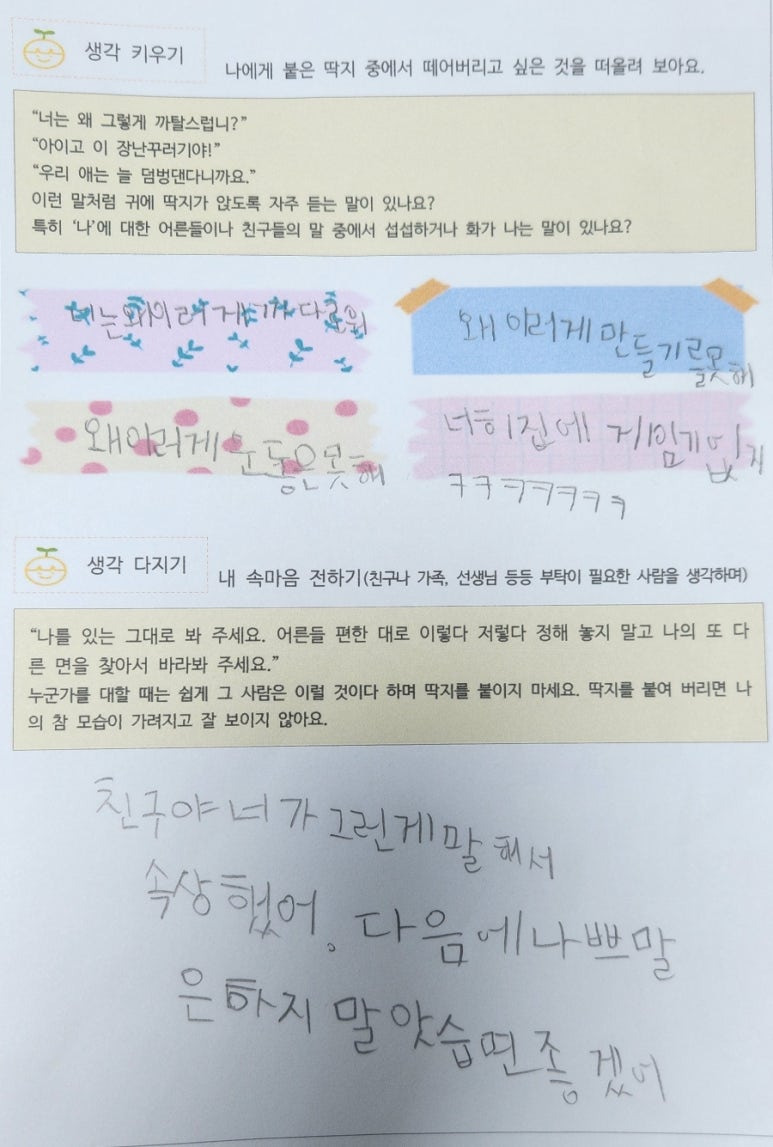 생각 키우기
나에게 붙은 딱지 중에서 떼어버리고 싶은 것을 떠올려 보아요.
“너는 왜 그렇게 까탈스럽니?”
“아이고 이 장난꾸러기야!”
“우리 애는 늘 덤벙댄다니까요.”
이런 말처럼 귀에 딱지가 앉도록 자주 듣는 말이 있나요?
특히 ‘나’에 대한 어른들이나 친구들의 말 중에서 섭섭하거나 화가 나는 말이 있나요?
너는왜이러게
왜 이러게 만들기를못해
왜이러게 운동은못해
너히집에 게임기없지
ㅋㅋㅋㅋㅋㅋㅋ
생각 다지기
내 속마음 전하기(친구나 가족, 선생님 등등 부탁이 필요한 사람을 생각하며)
“나를 있는 그대로 봐 주세요. 어른들 편한 대로 이렇다 저렇다 정해 놓지 말고 나의 또 다
른 면을 찾아서 바라봐 주세요.”
누군가를 대할 때는 쉽게 그 사람은 이럴 것이다 하며 딱지를 붙이지 마세요. 딱지를 붙여 버리면 나
의 참 모습이 가려지고 잘 보이지 않아요.
친구야 너가 그런게 말해서
속상했어. 다음에 나쁘말
은 하지 말앗습면 좋겠어